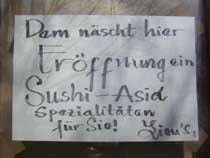 Dam näscht hier
Eröffnung ein
Sushi-Asia
Spezialitäten
für Sie! Lieu's